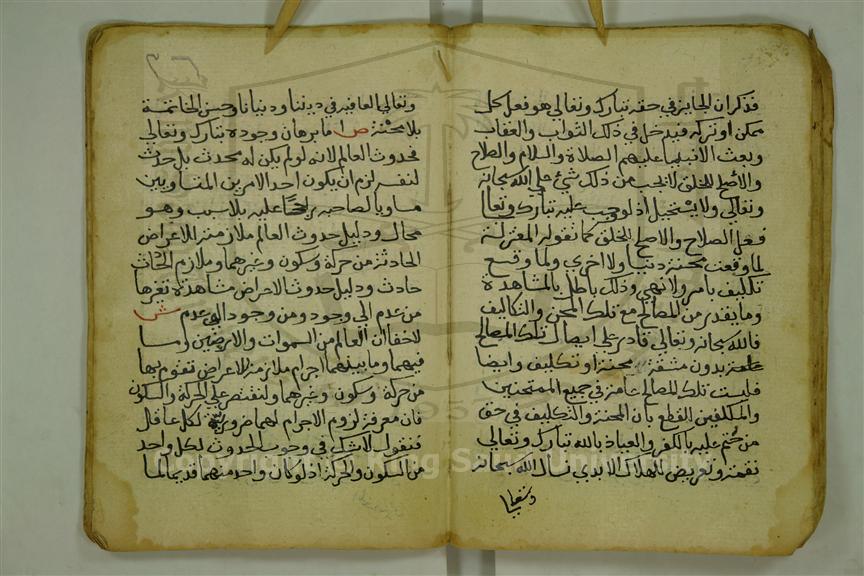 فذكر ان الجايز في حقه تبارك وتعالي هو فعل كل
ممكن او تركه فيدخل في ذلك الثواب والعقاب
وبعث الانبياء عليهم الصلاة والسلام والصلاح
والاصلح للخلق لا يجب من ذلك شيء علي الله سبحانه
وتعالي ولا يستحيل اذ لو وجب عليه تبارك وتعا
فعل الصلاح والاصلح للخلق كما تقوله المعتزلة
لما وقعت محنة دنيا ولا اخري ولما وقع
تكليف بامر ولا نهي وذلك باطل بالمشاهدة
وما يقدر من المصالح مع تلك المحن والتكاليف
فالله سبحانه وتعالي قادر علي ايصال تلك المصالح
بدون مشقة او محنة او تكليف وايضا
فليست تلك المصالح عامة في جميع الممتحنين
والمكلفين للقطع بان المحنة والتكليف في حق
من ختم عليه بالكفر والعياذ بالله تبارك وتعالي
نقمة وتعريض للهلاك الابدي نسال الله سبحانه
وتعالي
وتعالي العافية في ديننا ودنيانا وحسن الخاتمة
بلا محنة ص اما برهان وجوده تبارك وتعالي
فحدوث العالم لانه لو لم يكن له محدث بل حدث
لنفسه لزم ان يكون احد الامرين المتساويين
مساويا لصاحبه راجحا عليه بلا سبب وهو
محال ودليل حدوث العالم ملازمته للاعراض
الحادثة من حركة وسكون وغيرهما وملازم الحادث
حادث ودليل حدوث الاعراض مشاهدة تغيرها
من عدم الي وجود ومن وجود الي عدم ش
لا خفا ان العالم من السموات والارضين وما
فيهما وما بينهما اجرام ملازمة للاعراض تقوم بها
من حركة وسكون وغيرهما ولنقتصر علي الحركة والسكون
فان معرفة لزوم الاجرام لهما ضرورية لكل عاقل
فنقول لا شك في وجوب الحدوث لكل واحد
من السكون والحركة اذ لو كان واحد منهما قديما لما
Copyright © King Saud University
1957